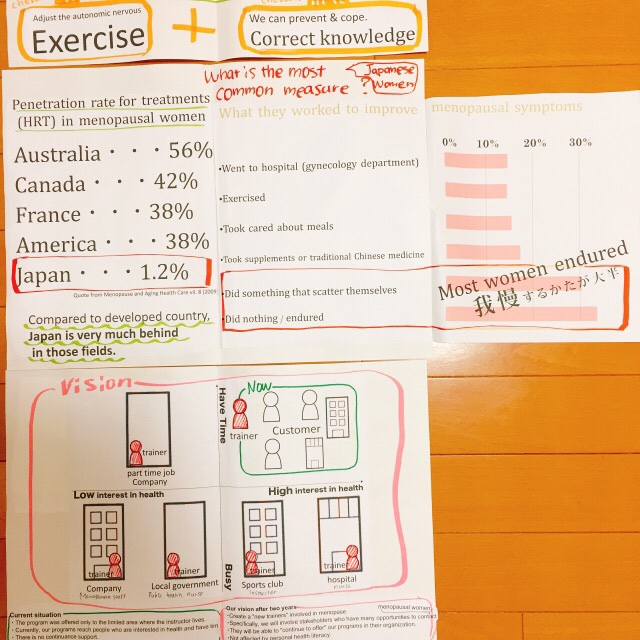 Adjust the autonomic nervous
Exercise
+
We can prevent & cope.
Correct knowledge
Penetration rate for treatments
(HRT) in menopausal women
Australia・・・56%
Canada・・・42%
France・・・38%
America・・・38%
Japan・・・1.2%
Quote from Menopause and Aging Health Care vil. 8 (2009
Compared to developed country,
Japan is very much behind
in those fields.
What is the most
common measure ?
Japanese
Women
What they worked to improve menopausal symptoms
0% 10% 20% 30%
・Went to hospital (gynecology department)
・Exercised
・Took cared about meals
・Took supplements or traditional Chinese medicine
・Did something that scatter themselves
・Did nothing / endured
Most women endured
我慢するかたが大半
Vision
Have Time
Now
trainer
Customer
trainer
part time job
Company
Low interest in health
High interest in health
Busy
trainer
Company
trainer
Local government
Public health nurse
trainer
Sports club
instructor
trainer
hospital
nurse
Current situation
・The program was offered only to the limited area where the instructor lives.
・Currently, our programs reach people who are interested in health and have
・There is no continuance support.
Our vision after two years
menopausal women
・Create a "new trainers" involved in menopose.
・Specifically, we will involve stakeholders who have many opportunities to contact
・They will be able to "continue to offer" our programs in their organization.
・Not affected by personal health literacy.